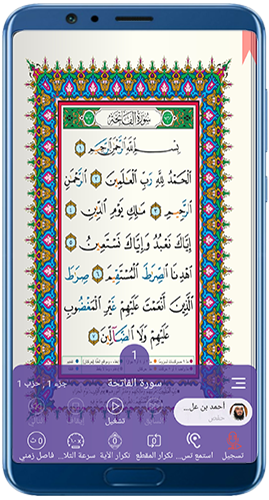 سُورَةُ الفَاتِحَةِ
بِسْمِ اللَّهِ الرَّحْمَٰنِ الرَّحِيمِ ١
الْحَمْدُ لِلَّهِ رَبِّ الْعَالَمِينَ ٢ الرَّحْمَٰنِ
الرَّحِيمِ ٣ مَالِكِ يَوْمِ الدِّينِ ٤
إِيَّاكَ نَعْبُدُ وَإِيَّاكَ نَسْتَعِينُ ٥
اهْدِنَا الصِّرَاطَ الْمُسْتَقِيمَ ٦ صِرَاطَ
الَّذِينَ أَنْعَمْتَ عَلَيْهِمْ غَيْرِ الْمَغْضُوبِ
عَلَيْهِمْ وَلَا الضَّالِّينَ ٧
1
سورة الفاتحة
جزء 1 , حزب 1
أحمد بن عل...
حفص
تشغيل
تسجيل
استمع تس...
تكرار المقطع
تكرار الآية
سرعة التلا...
فاصل زمني